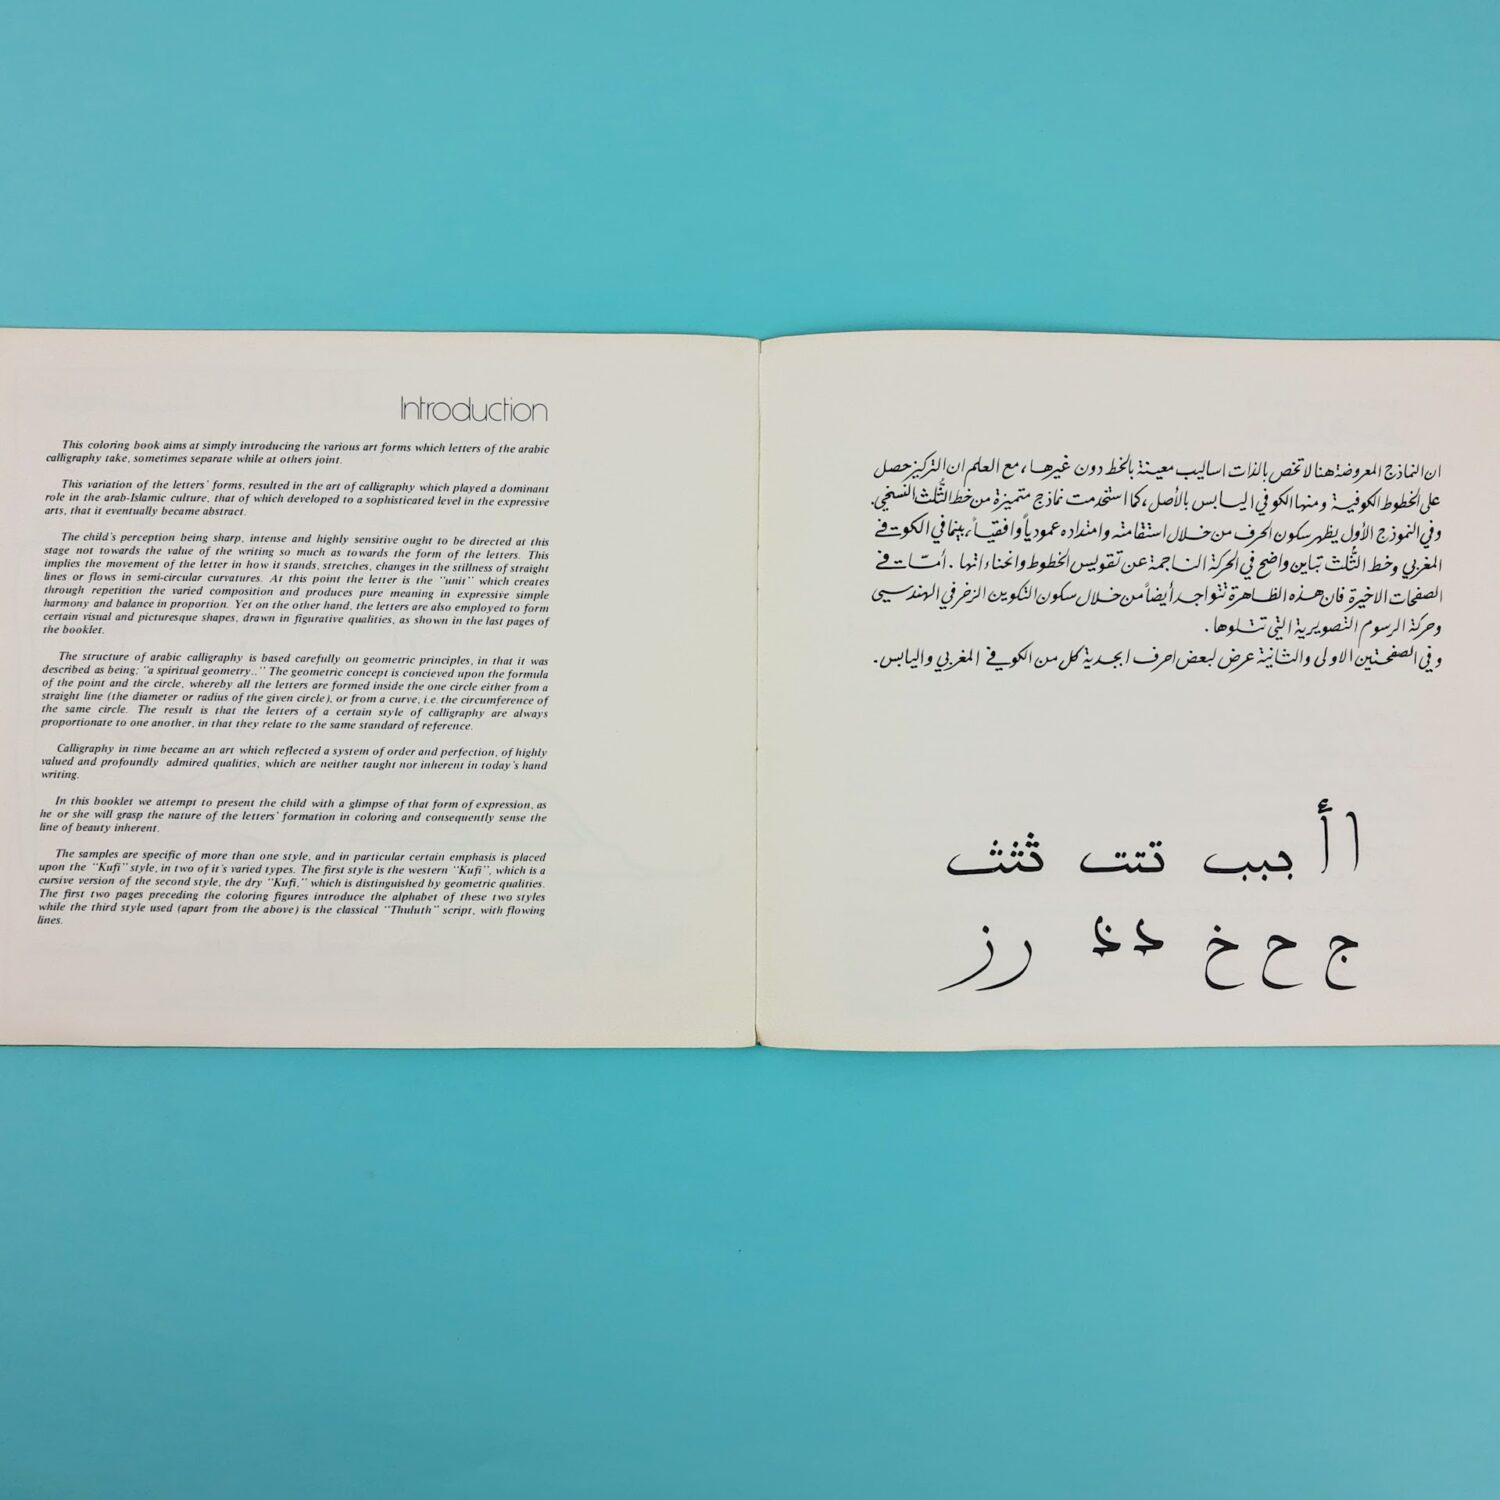 Introduction
This coloring book aims at simply introducing the various art forms which letters of the arabic
calligraphy take, sometimes separate while at others joint.
This variation of the letters' forms, resulted in the art of calligraphy which played a dominant
role in the arab-Islamic culture, that of which developed to a sophisticated level in the expressive
arts, that it eventually became abstract.
The child's perception being sharp, intense and highly sensitive ought to be directed at this
stage not towards the value of the writing so much as towards the form of the letters. This
implies the movement of the letter in how it stands, stretches, changes in the stillness of straight
lines or flows in semi-circular curvatures. At this point the letter is the "unit" which creates
through repetition the varied composition and produces pure meaning in expressive simple
harmony and balance in proportion. Yet on the other hand, the letters are also employed to form
certain visual and picturesque shapes, drawn in figurative qualities, as shown in the last pages of
the booklet.
The structure of arabic calligraphy is based carefully on geometric principles, in that it was
described as being; "a spiritual geometry.." The geometric concept is concieved upon the formula
of the point and the circle, whereby all the letters are formed inside the one circle either from a
straight line (the diameter or radius of the given circle), or from a curve, i.e. the circumference of
the same circle. The result is that the letters of a certain style of calligraphy are always
proportionate to one another, in that they relate to the same standard of reference.
Calligraphy in time became an art which reflected a system of order and perfection, of highly
valued and profoundly admired qualities, which are neither taught nor inherent in today's hand
writing.
In this booklet we attempt to present the child with a glimpse of that form of expression, as
he or she will grasp the nature of the letters' formation in coloring and consequently sense the
line of beauty inherent.
The samples are specific of more than one style, and in particular certain emphasis is placed
upon the "Kufi" style, in two of it's varied types. The first style is the western "Kufi", which is a
cursive version of the second style, the dry "Kufi," which is distinguished by geometric qualities.
The first two pages preceding the coloring figures introduce the alphabet of these two styles
while the third style used (apart from the above) is the classical "Thuluth" script, with flowing
lines.
ان النماذج المعروضة هنا لا تخص بالذات اساليب معينة بالخط دون غيرها، مع العلم ان التركيز حصل
على الخطوط الكوفية ومنها الكوفي اليابس بالأصل، كما استخدمت نماذج متميزة من خط الثُّلث النسخي.
وفي النموذج الأول يظهر سكون الحرف من خلال استقامته وامتداده عمودياً وافقياً، بينما في الكوفي
المغربي وخط الثُّلث تباين واضح في الحركة الناجمة عن تقويس الخطوط وانحناءاتها. أمّا في
الصفحات الاخيرة فان هذه الظاهرة تتواجد أيضاً من خلال سكون التكوين الزخرفي الهندسي
وحركة الرسوم التصويرية التي تتلوها.
وفي الصفحتين الاولى والثانية عرض لبعض احرف ابجدية كل من الكوفي المغربي واليابس.
ا أ ببب تتت ثثث
ج ح خ د ذ ر ز